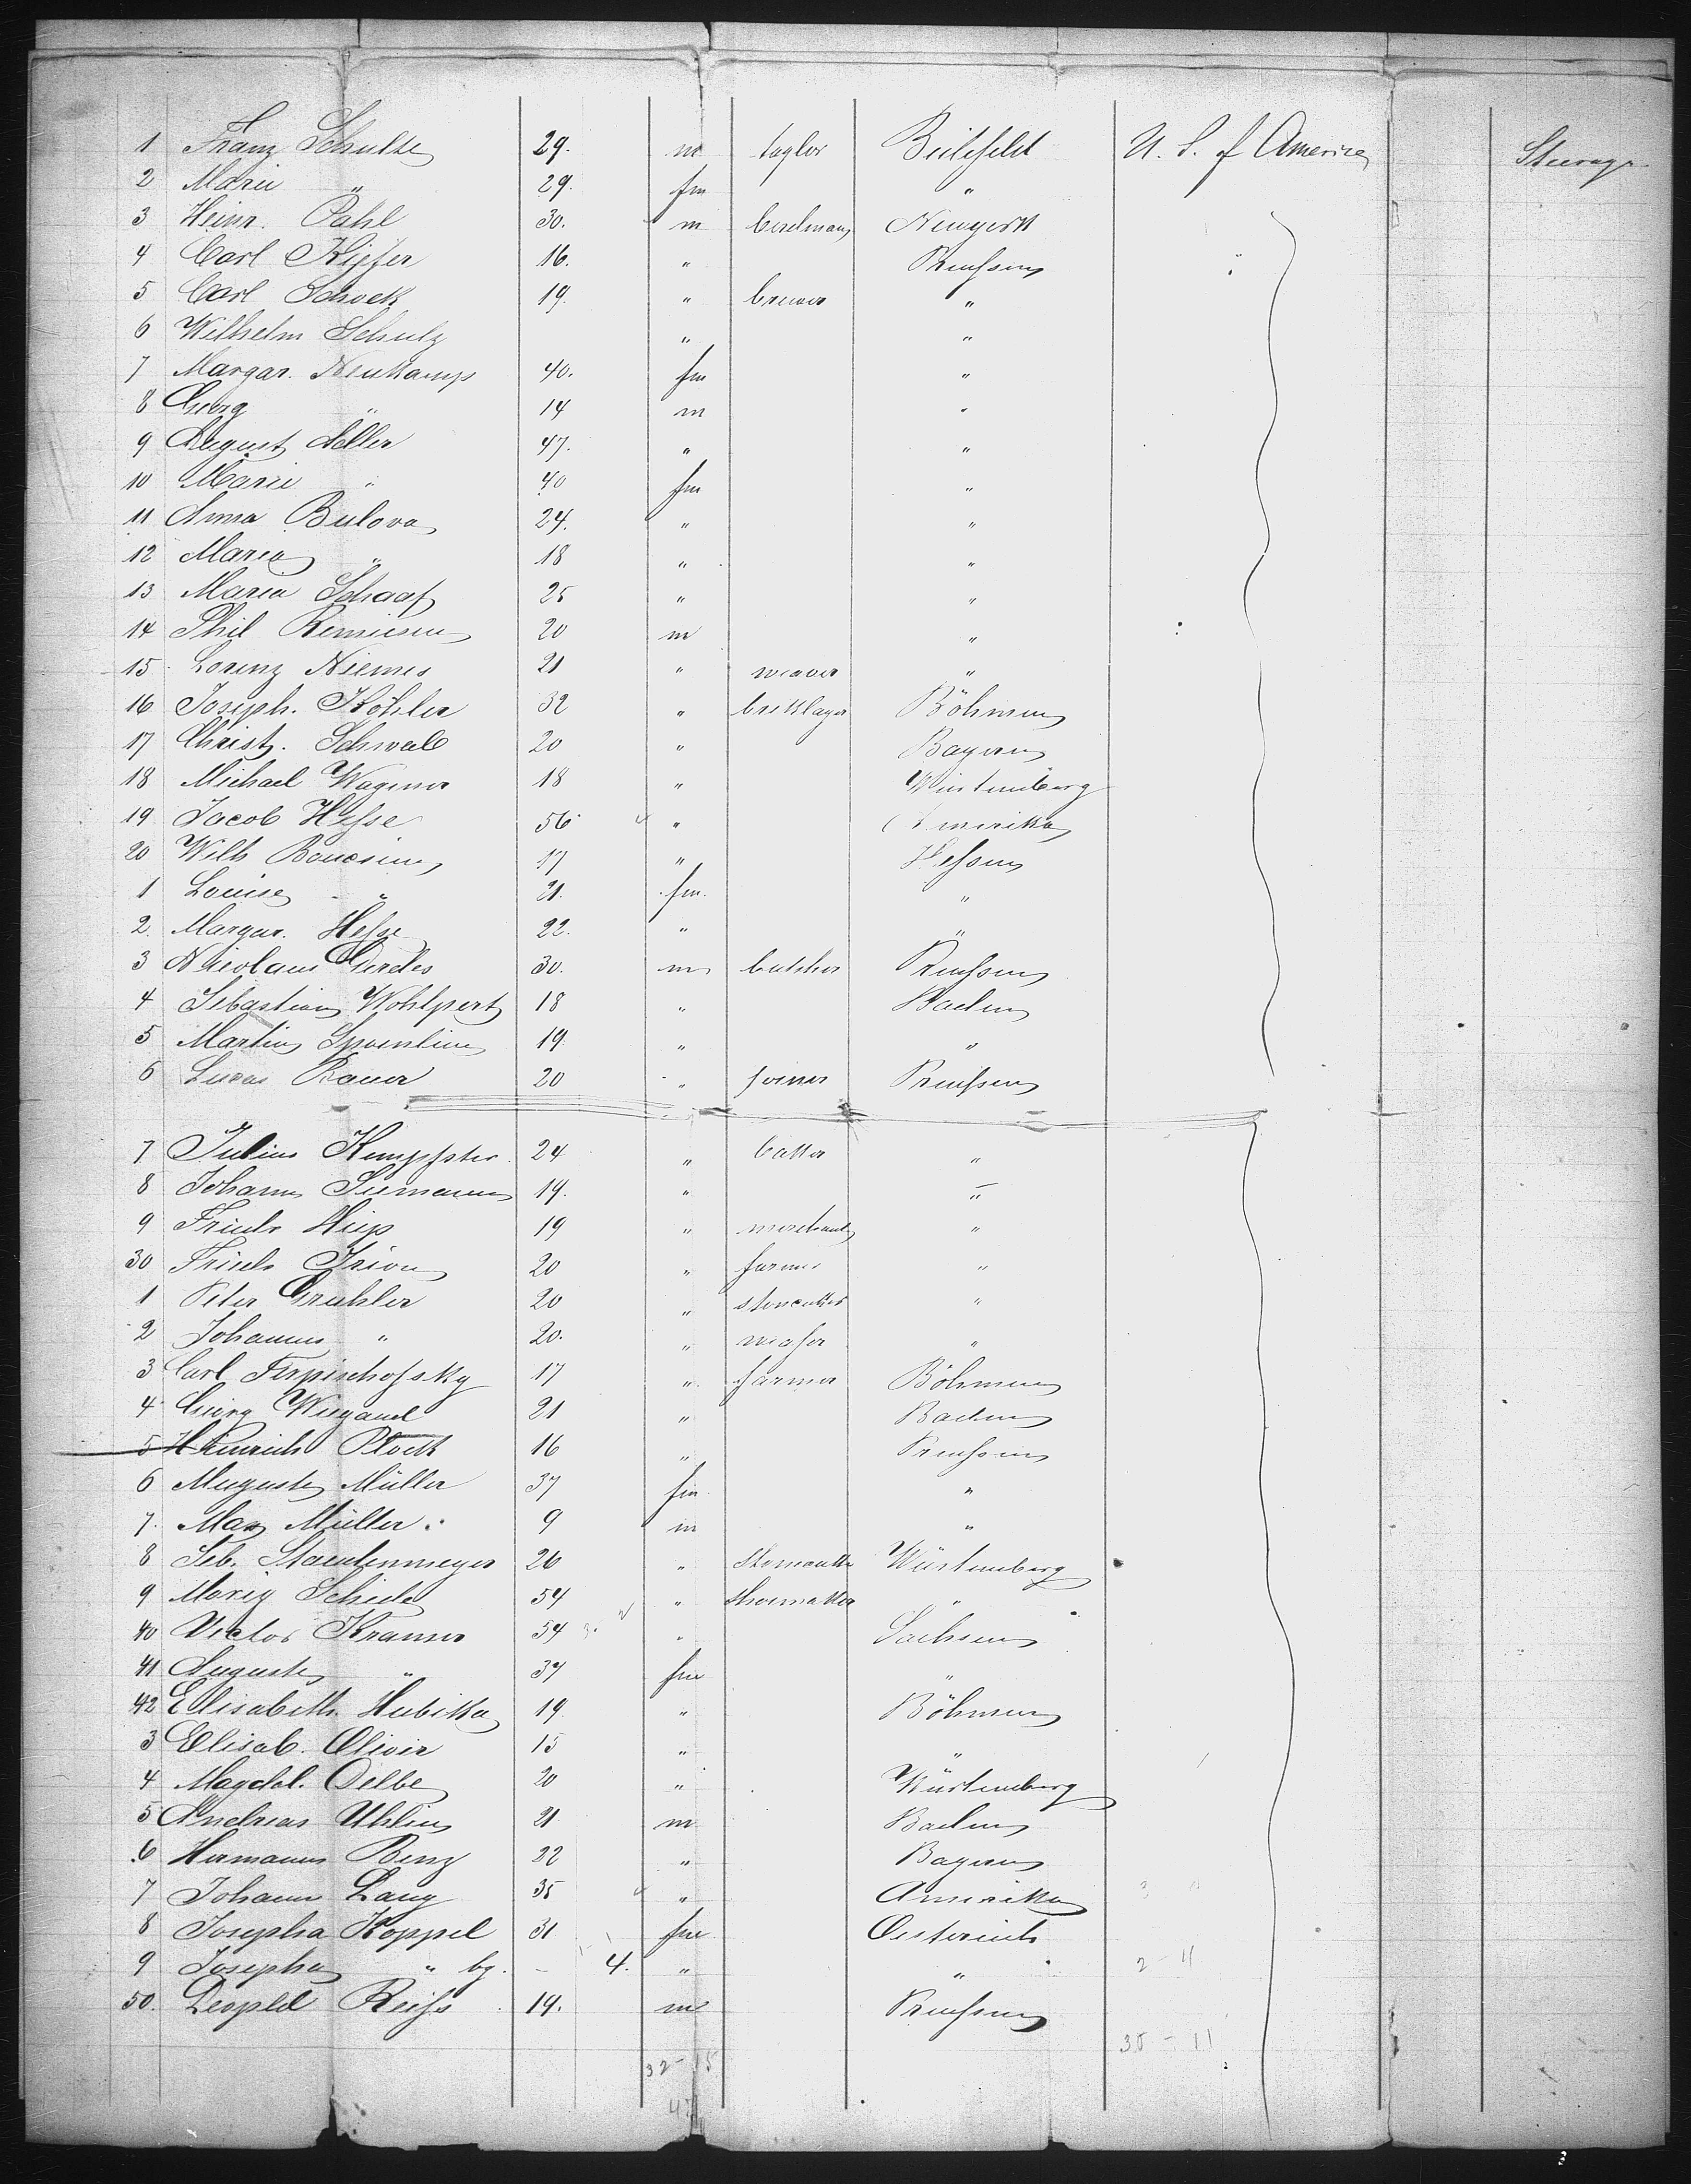 1 Franz Schulte 29. m taylor Bielefeld U. S. of America Steerage
2 Marie " 29. fm "
3 Heinr. Pahl 30. m Newyork
4 Carl Kiefer 16. " Preussen "
5 Carl Schock 19. " brewer "
6 Wilhelm Schulz " "
7 Margar. Neukamp 40. fm "
8 Georg " 14 m "
9 August Adler 47. " "
10 Marie " 40 fm "
11 Anna Bulova 24. " "
12 Maria " 18 " "
13 Maria Schaaf 25 " "
14 Phil 20 m "
15 Lorenz Niemes 21 " weaver "
16 Joseph. Köhler 32 " bricklayer Böhmen
17 Christ. Schwab 20 " Bayern
18 Michael Wagener 18 " Würtemberg
19 Jacob Hesse 56 " Amerika
20 Wilh 17 " Hessen
1 Louise " 21. fm. "
2. Margar. Hesse 22. " "
3 Nicolaus Gerdes 30. m butcher Preussen
4 Sebastian Wohlpert 18 " Baden
5 Martin 19 " "
6 Lucas Bauer 20 " joiner Preussen
7 Julius 24 " "
8 Johann Siemann 19. " "
9 Friedr Hiep 19 " merchant "
30 Friedr Irion 20 " farmer "
1 Peter Gruhler 20 " stoncutter "
2 Johannes " 20. " "
3 Carl 17 " farmer Böhmen
4 Georg Wiegand 21 " Baden
5 Heinrich Plock 16 " Preussen
6 Auguste Müller 37 fm "
7. Max Müller 9 m "
8 Seb. Staudenmeyer 26 " Würtemberg
9 54 " shoemaker "
40 Victor Kramer 54 " Sachsen
41 Auguste " 37 fm "
42 Elisabeth. Hubika 19 " Böhmen
3 Elisab. Olivir 15 " "
4 Magdal. Delbe 20 " Würtemberg
5 Andreas Uhlin 21 m Baden
6 Hermann Benz 22 " Bayern
7 Johann Lang 35 " Amerika
8 Josepha Koppel 31 fm Oesterreich
9 Josepha " by. - 4. " "
2 - 4
50. Leopold Reiss 19. m Preussen
35 - 11
32 - 15